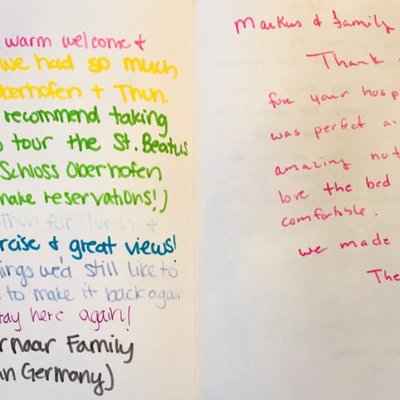 warm welcome +
we had so much
Oberhofen + Thun
recommend taking
to tour the St. Beatus
Schloss Oberhofen
make reservations!)
Thun for lunch +
rcise & great views!
ings we'd still like to
to make it back again
tay here again!
r naar Family
an Germany)
Markus & family
Thank
for your hosp
was perfect a
amazing not
love the bed
comfortable.
we made
The